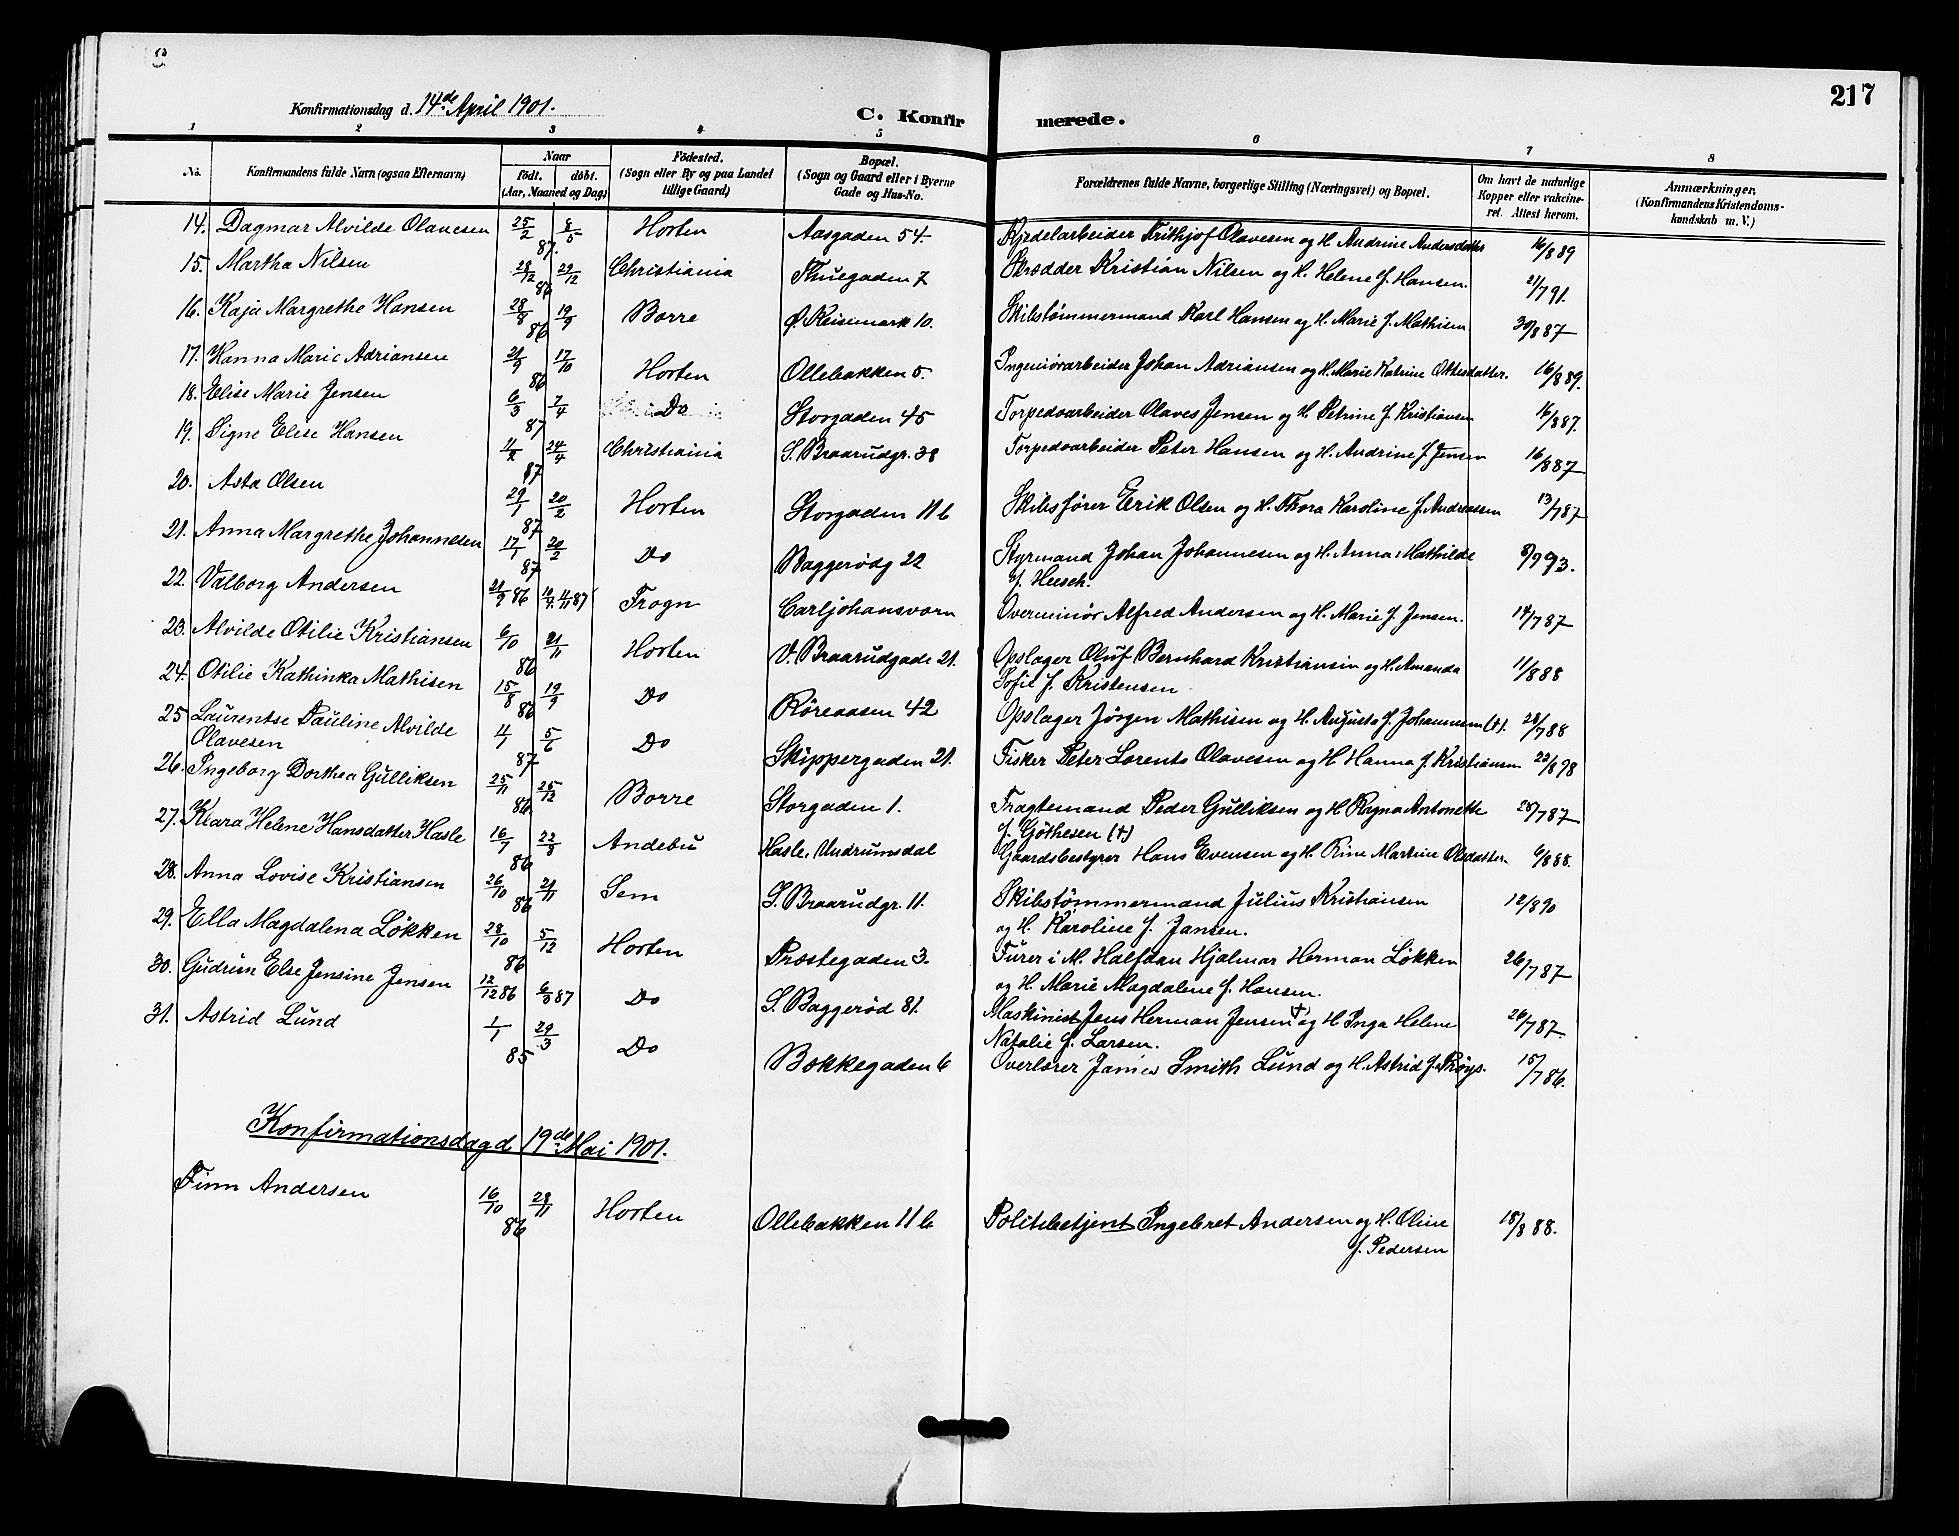 217
Konfirmationsdag d. 14de April 1901.
C. Konfirmerede.
1 2 3 4 5 6 7 8
No. Konfirmandens fulde Navn (ogsaa Efternavn) Naar født. døbt. (Aar, Maaned og Dag) Födested. (Sogn eller By og paa Landet tillige Gaard) Bopæl. (Sogn og Gaard eller i Byerne Gade og Hus-No. Forældrenes fulde Navne, borgerlige Stilling (Næringsvei) og Bopæl. Om havt de naturlige Kopper eller vakcineret. Attest herom. Anmærkninger. (Konfirmandens Kristendomskundskab m. V.)
14. Dagmar Alvilde Olavesen 25/2 8/5 87. Horten Aasgaden 54. Kjedelarbeider Frithjof Olavesen og H. Andrine Andersdatter 16/8 89
15. Martha Nilsen 28/12 29/12 86 Christiania Thuegaden 7 Skrædder Kristian Nilsen og H. Helene f. Hansen. 21/7 91.
16. Kaja Margrethe Hansen 28/8 19/9 86 Borre Ø. Keisemark 10. Skibstømmermand Karl Hansen og H. Marie f. Mathisen 30/8 87
17. Hanna Marie Adriansen 21/9 17/10 86 Horten Ollebakken 5. Ingeniørarbeider Johan Adriansen og H. Marie Katrine Ottersdatter. 16/8 89.
18. Elise Marie Jensen 6/3 7/4 87 Do Storgaden 45 Torpedoarbeider Olaves Jensen og H. Petrine f. Kristiansen 16/8 87.
19. Signe Elise Hansen 11/2 24/4 87 Christiania S. Braarudgr. 38 Torpedoarbeider Peter Hansen og H. Andrine f. Jensen 16/8 87
20. Asta Olsen 29/1 20/2 87 Horten Storgaden 11 b Skibsfører Erik Olsen og H. Thora Karoline f. Andreassen 13/7 87
21. Anna Margrethe Johannesen 17/1 20/2 87 Do Baggerødg 22 Styrmand Johan Johannesen og H. Anna Mathilde 8/9 93.
f. Heesch.
22. Valborg Andersen 21/9 86 11/11 87 Frogn Carljohansvorn Overminør Alfred Andersen og H. Marie f. Jensen. 14/7 87
23. Alvilde Otilie Kristiansen 6/10 21/11 86 Horten V. Braarudgade 21. Opslager Oluf Bernhard Kristiansen og H. Amanda 11/8 88
Sofil f. Kristensen
24. Otilie Kathinka Mathisen 15/8 19/9 86 Do Røreaasen 42 Opslager Jørgen Mathisen og H. Augusta f. Johannesen (†). 28/7 88
25 Laurentse Pauline Alvilde 4/1 5/6 87 Do Skippergaden 21. Fisker Peter Lorents Olavesen og H. Hanna f. Kristiansen 22/8 98
Olavesen
26. Ingeborg Dorthea Gulliksen 25/11 25/12 86. Borre Storgaden 1. Fragtemand Peder Gulliksen og H. Ragna Antonette 25/7 87
f. Göthesen (†)
27. Klara Helene Hansdatter Hasle 16/7 22/8 86 Andebu Hasle. Undrumsdal Gaardsbestyrer Hans Evensen og H. Rine Martine Olsdatter. 6/8 88.
28. Anna Lovise Kristiansen 26/10 21/11 86 Sem S. Braarudgr. 11. Skibstømmermand Julius Kristiansen 12/8 90
og H. Karoline f. Jansen.
29. Ella Magdalena Løkken 28/10 5/12 86 Horten Præstegaden 3. Furer i M. Halfdan Hjalmar Herman Løkken 26/7 87
og H. Marie Magdalene f. Hansen.
30. Gudrun Else Jensine Jensen 12/12 86 6/3 87 Do S. Baggerød 81. Maskinist Jens Herman Jensen † og H. Inga Helene 26/7 87.
Natalie f. Larsen.
31. Astrid Lund 1/1 29/3 85 Do Bokkegaden 6 Overlærer James Smith Lund og H. Astrid f. Prøys. 15/7 86.
Konfirmationsdag d 19de Mai 1901.
Finn Andersen 16/10 28/11 86 Horten Ollebakken 11 b Politibetjent Ingebret Andersen og H. Oline 18/8 88.
f. Pedersen